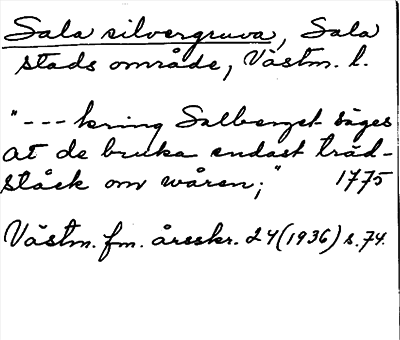 Sala silvergruva, Sala
stads område, Västm. l.
"--- kring Salberget säges
at de bruka endast träd-
stäck om wåren;" 1775
Västm. fm. årsskr. 24(1936) s. 74.